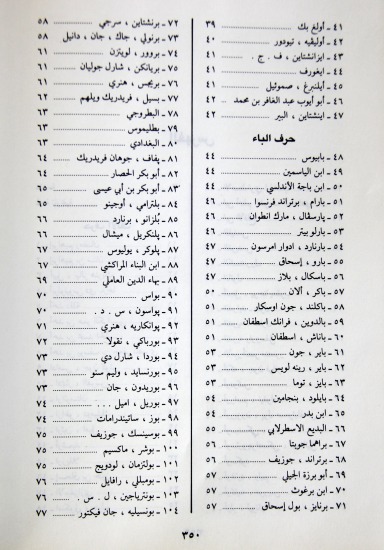 ٤١ ـ أولغ بك ... ٣٩
٤٢ ـ أوليفيه ، تيودور ... ٤٠
٤٣ ـ ايزانشتاين ، ف . ج . ٤١
٤٤ ـ ايغورف ... ٤١
٤٥ ـ أيلنبرغ ، صموئيل ... ٤١
٤٦ ـ أبو أيوب عبد الغافر بن محمد ... ٤٢
٤٧ ـ اينشتاين ، البير ... ٤٢
حرف الباء
٤٨ ـ بابيوس ... ٤٤
٤٩ ـ ابن الياسمين ... ٤٤
٥٠ ـ ابن باجة الأندلسي ... ٤٤
٥١ ـ بارام ، برتراند فرنسوا ... ٤٦
٥٢ ـ پارسفال ، مارك انطوان ... ٤٦
٥٣ ـ بارلو بيتر ... ٤٦
٥٤ ـ بارنارد ، ادوار امرسون ... ٤٧
٥٥ ـ بارو ، إسحاق ... ٤٧
٥٦ ـ باسكال ، بلاز ... ٤٧
٥٧ ـ باكر ، ألان ... ٥٠
٥٨ ـ باكلند ، جون اوسكار ... ٥١
٥٩ ـ بالدوين ، فرانك اسطفان ... ٥١
٦٠ ـ باناش ، اسطفان ... ٥١
٦١ ـ باير ، جون ... ٥٣
٦٢ ـ باير ، رينه لويس ... ٥٣
٦٣ ـ بايز ، توما ... ٥٣
٦٤ ـ بايلود ، بنجامين ... ٥٤
٦٥ ـ ابن بدر ... ٥٤
٦٦ ـ البديع الاسطرلابي ... ٥٥
٦٧ ـ براهما جوبتا ... ٥٥
٦٨ ـ برتراند ، جوزيف ... ٥٦
٦٩ ـ أبو برزة الجيلي ... ٥٧
٧٠ ـ ابن برغوث ... ٥٧
٧١ ـ برنايز ، بول إسحاق ... ٥٧
٧٢ ـ برنشتاين ، سرجي ... ٥٨
٧٣ ـ برنولي ، جاك ، جان ، دانيل ... ٥٨
٧٤ ـ بروور ، لويتزن ... ٦١
٧٥ ـ بريانكن ، شارل جوليان ... ٦١
٧٦ ـ بريجس ، هنري ... ٦١
٧٧ ـ بسيل ، فريدريك ويلهم ... ٦٢
٧٨ ـ البطروجي ... ٦٣
٧٩ ـ بطليموس ... ٦٣
٨٠ ـ البغدادي ... ٦٣
٨١ ـ پفاف ، جوهان فريدريك ... ٦٤
٨٢ ـ أبو بكر الحصار ... ٦٤
٨٣ ـ أبو بكر بن أبي عيسى ... ٦٥
٨٤ ـ بلترامي ، أوجينو ... ٦٥
٨٥ ـ بُلزانو ، برنارد ... ٦٥
٨٦ ـ پلنكريل ، ميشال ... ٦٦
٨٧ ـ پلوكر ، يوليوس ... ٦٧
٨٨ ـ ابن البناء المراكشي ... ٦٧
٨٩ ـ بهاء الدين العاملي ... ٦٩
٩٠ ـ بواس ... ٧٠
٩١ ـ پواسون ، س . د . ٧٠
٩٢ ـ پوانكاريه ، هنري ... ٧١
٩٣ ـ بورباكي ، نقولا ... ٧٢
٩٤ ـ بوردا ، شارل دي ... ٧٣
٩٥ ـ بورنسايد ، وليم سنو ... ٧٣
٩٦ ـ بوريدون ، جان ... ٧٣
٩٧ ـ بوريل ، اميل ... ٧٤
٩٨ ـ بوز ، ساتيندرامات ... ٧٤
٩٩ ـ بوسينسك ، جوزيف ... ٧٥
١٠٠ ـ بوشر ، ماكسيم ... ٧٥
١٠١ ـ بولتزمان ، لودويج ... ٧٥
١٠٢ ـ بومبللي ، رافايل ... ٧٦
١٠٣ ـ بونترياجين ، ل . س . ٧٦
١٠٤ ـ بونسيليه ، جان فيكتور ... ٧٧
٣٥٠